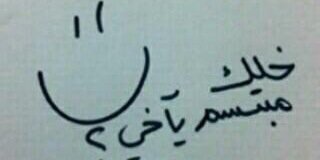 خليك
مبتسم يآخي